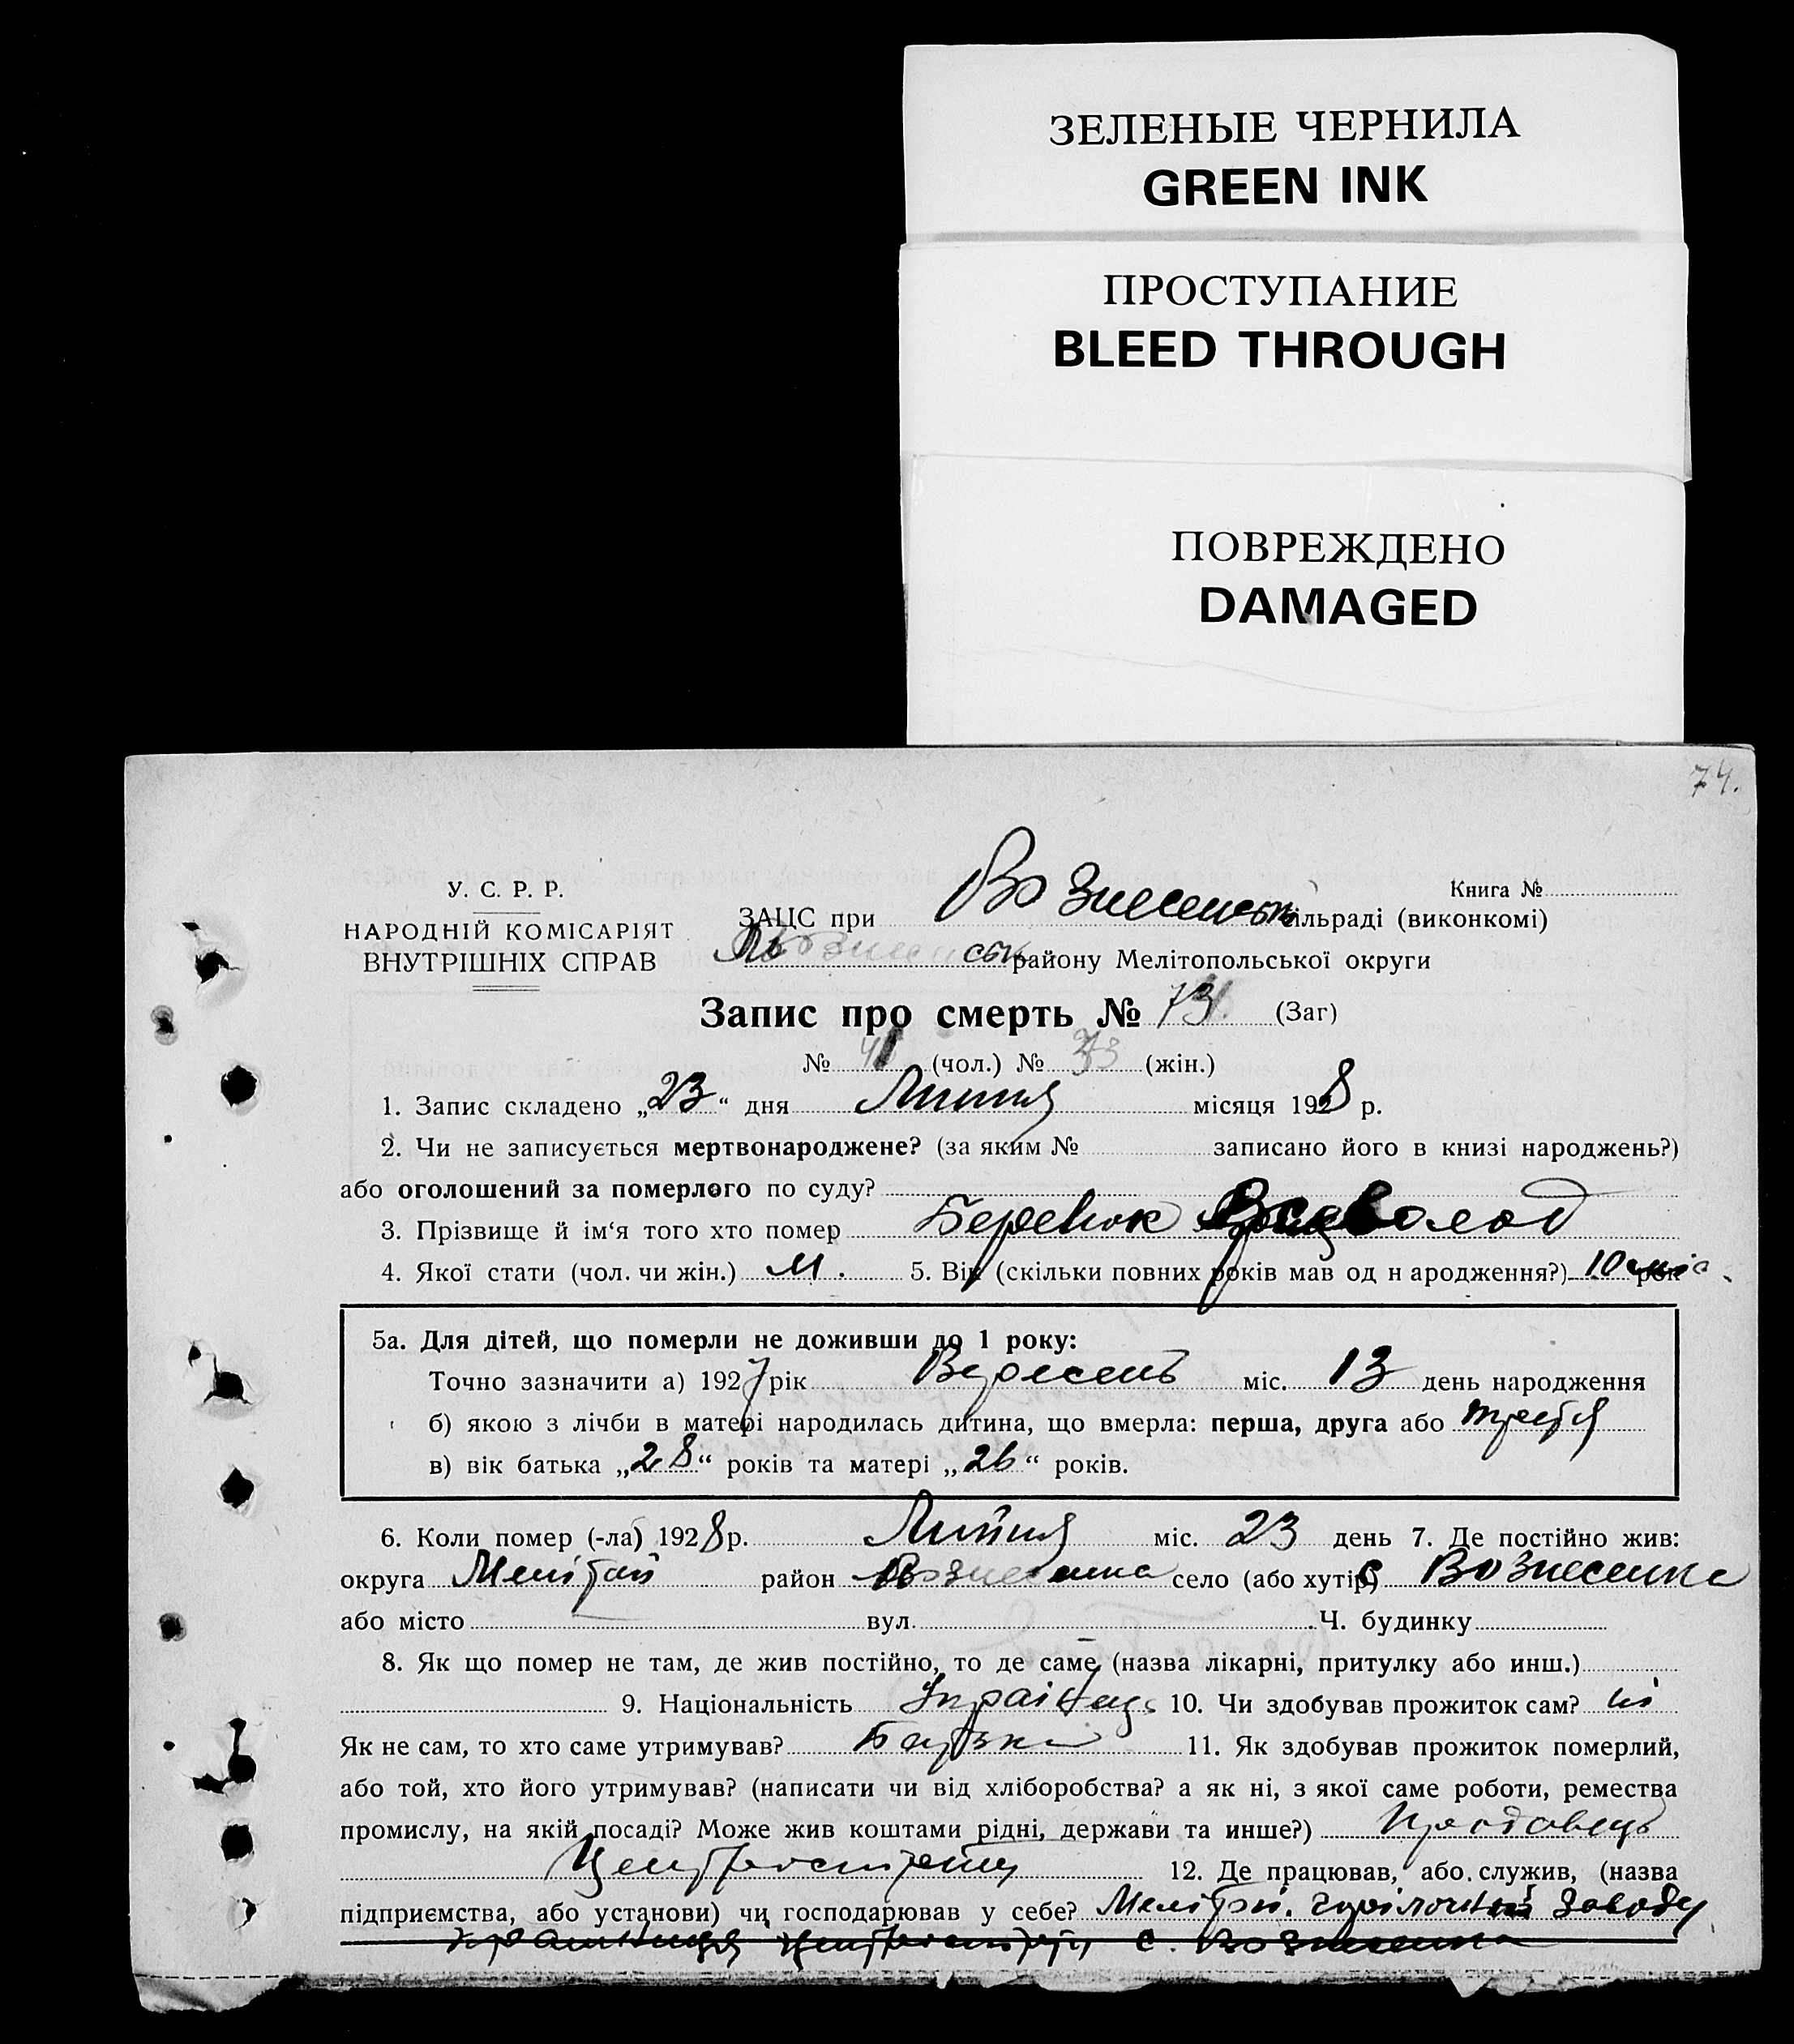 ЗЕЛЕНЫЕ ЧЕРНИЛА
GREEN INK
ПРОСТУПАНИЕ
BLEED THROUGH
ПОВРЕЖДЕНО
DAMAGED
74.
У. С. Р. Р.
НАРОДНІЙ КОМІСАРІЯТ
ВНУТРІШНІХ СПРАВ
Книга №
ЗАЦС при Вознесенськ сільраді (виконкомі)
району Мелітопольської округи
Запис про смерть № 73 (Заг)
№ 41 (чол.) № (жін.)
1. Запис складено „23“ дня Липня місяця 1928 р.
2. Чи не записується мертвонароджене? (за яким № записано його в книзі народжень?)
або оголошений за померлого по суду?
3. Прізвище й ім‘я того хто помер Беревюк Всеволод
4. Якої стати (чол. чи жін.) М. 5. Вік (скільки повних років мав од н ародження?) 10 міс.
5а. Для дітей, що померли не доживши до 1 року:
Точно зазначити а) 1927 рік Вересень міс. 13 день народження
б) якою з лічби в матері народилась дитина, що вмерла: перша, друга або третя
в) вік батька „28“ років та матері „26“ років.
6. Коли помер (-ла) 1928 р. Липня міс. 23 день 7. Де постійно жив:
округа Мелітоп район Вознесенка село (або хутір) с Вознесенка
або місто вул. Ч. будинку
8. Як що помер не там, де жив постійно, то де саме (назва лікарні, притулку або инш.)
9. Національність Українець 10. Чи здобував прожиток сам? ні
Як не сам, то хто саме утримував? Батько 11. Як здобував прожиток померлий,
або той, хто його утримував? (написати чи від хліборобства? а як ні, з якої саме роботи, ремества
промислу, на якій посаді? Може жив коштами рідні, держави та инше?) Продавець
Центроспирту 12. Де працював, або служив, (назва
підприємства, або установи) чи господарював у себе? Мелітоп. горілочний заводу
Центроспирту с. Вознесенка